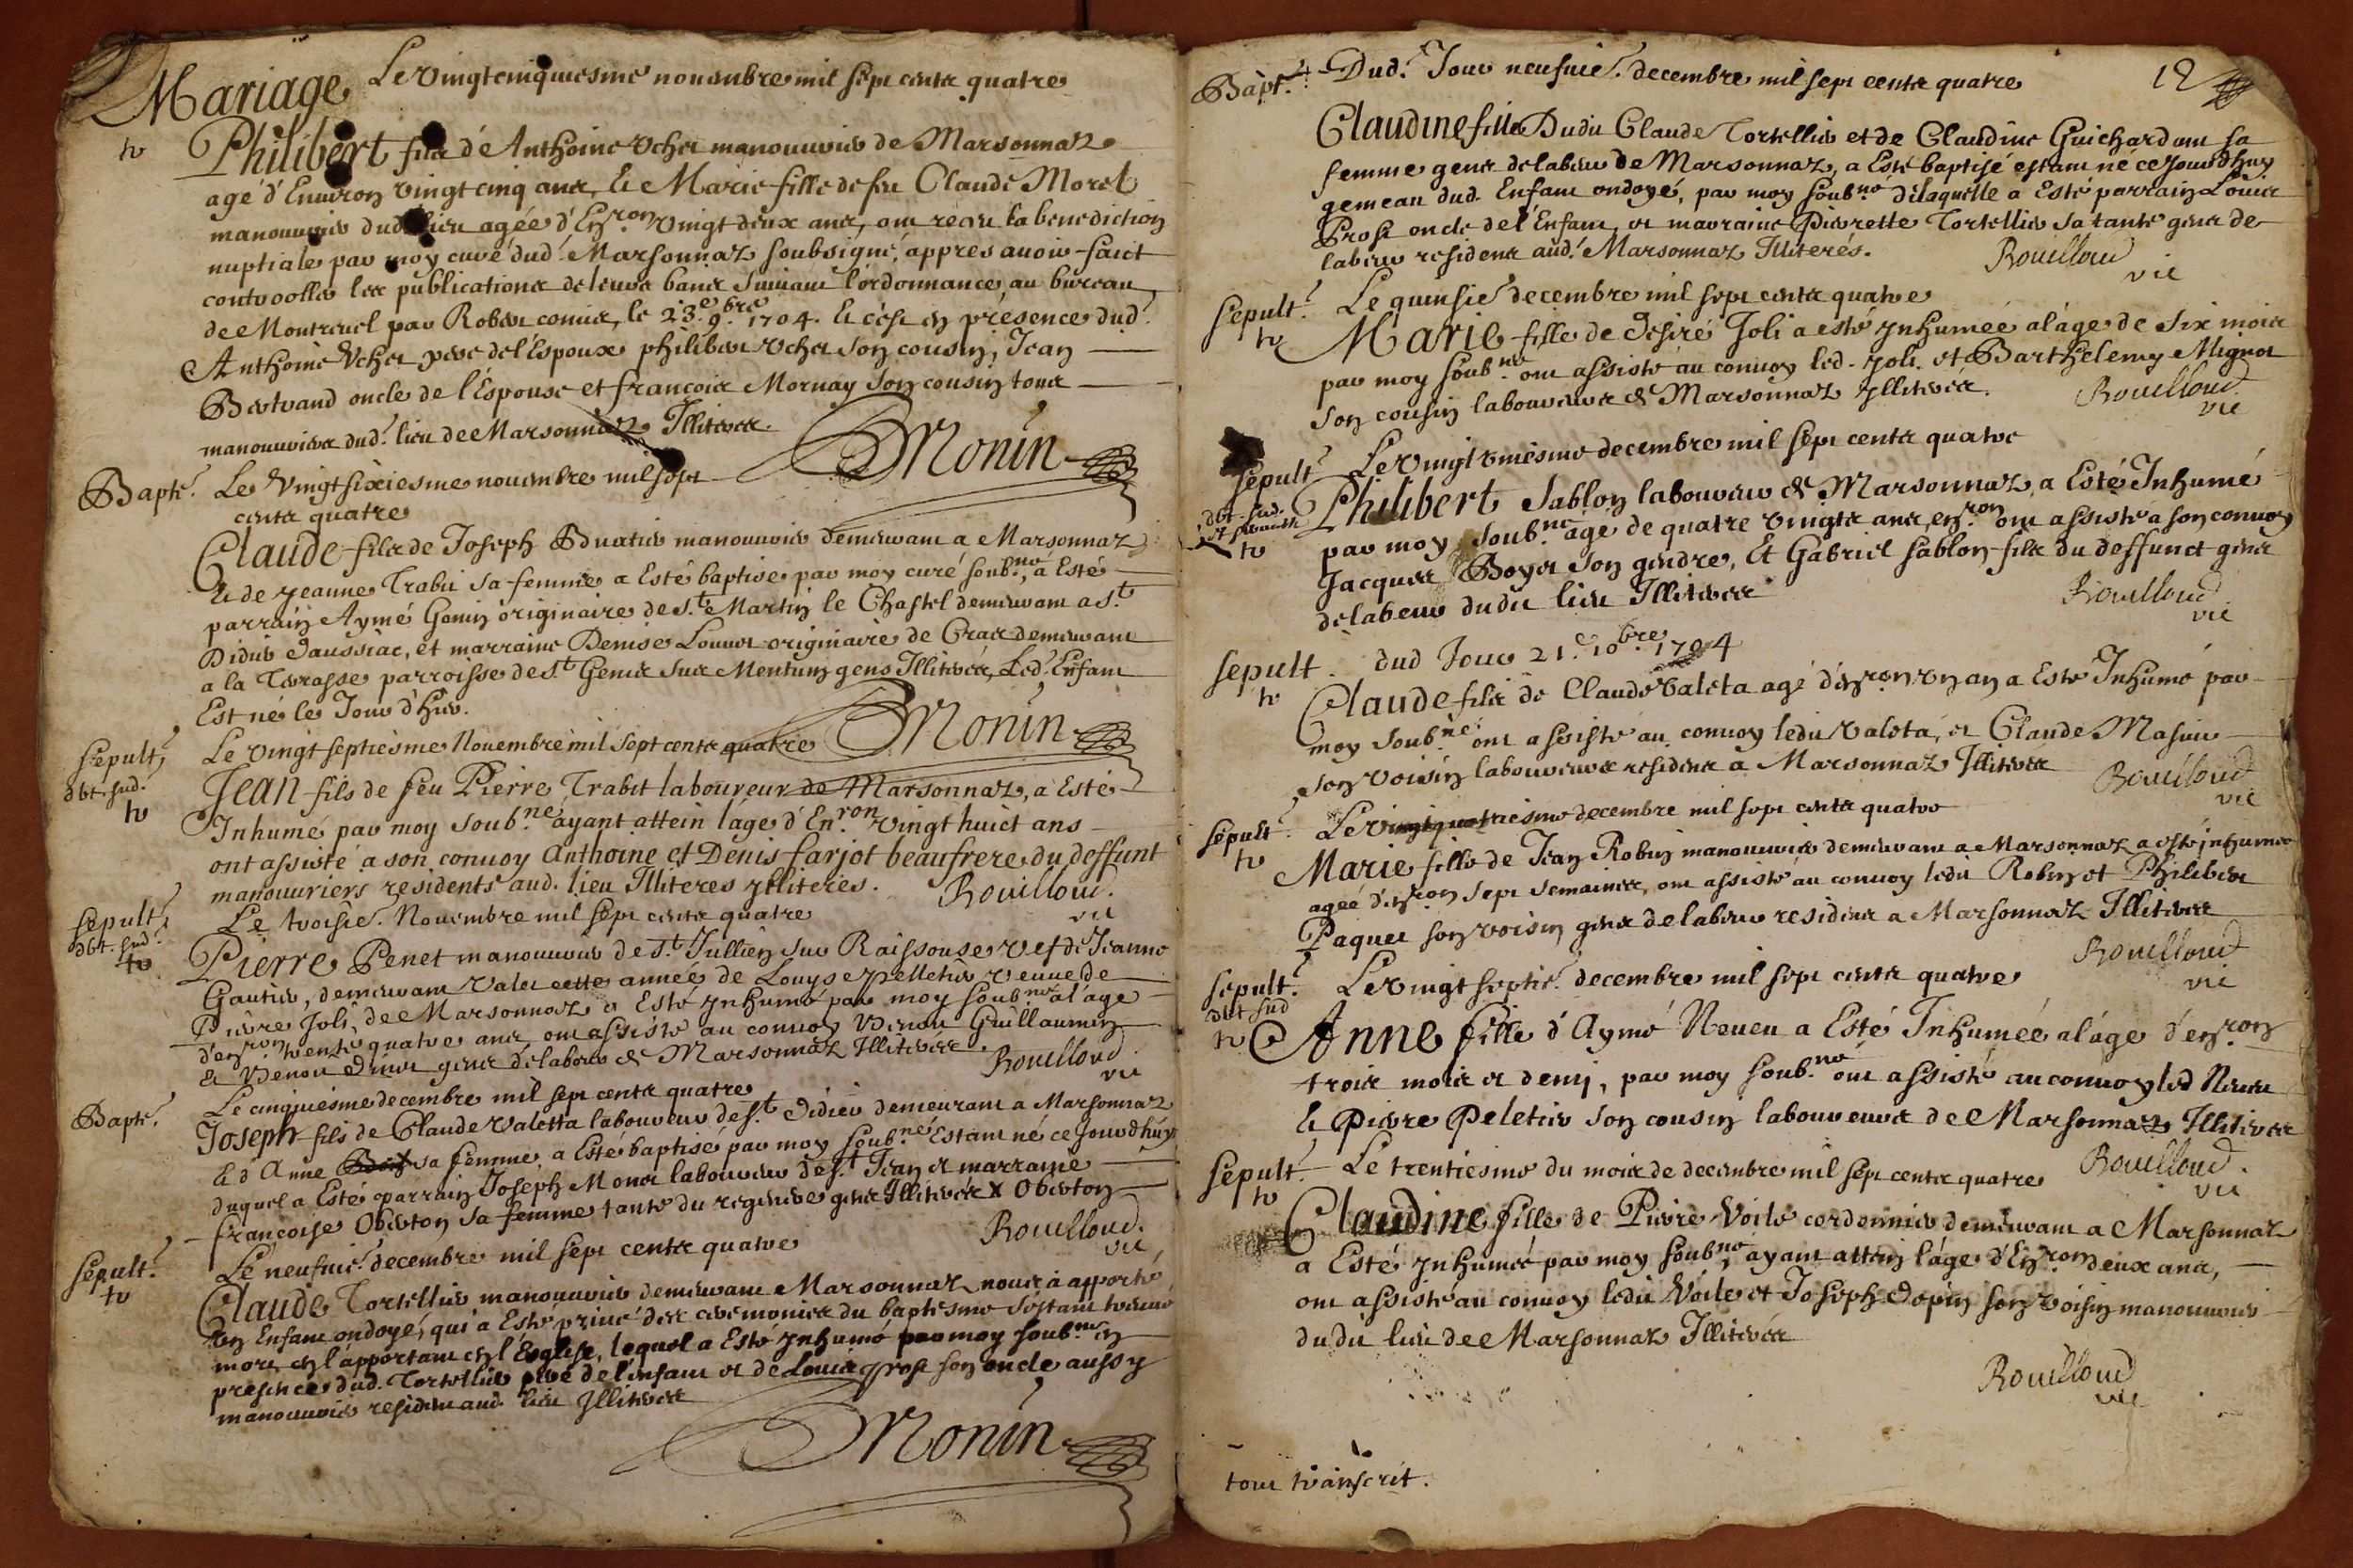 Mariage Le vingt cinquiesme nouenbre mil sept cents quatre
tr Philibert fils d'Anthoine Vcher manouurier de Marsonnaz
agé d'Enuiron vingt cinq ans, et Marie fille de feu Claude Morel
manouurier dud. lieu agée d'En.ron vingt deux ans, ont receu la benediction
nuptiale par moy curé dud. Marsonnaz soubsigné, appres auoir faict
controoller les publications de leurs bans Suiuant l'ordonnance, au bureau
de Montreuel par Robert commis, le 23.e 9.bre 1704. et c'est en présence dud.
Anthoine Vcher pere de l'Espoux philibert Vcher son cousin, Jean
Bertrand oncle de l'Espouse et françois Mornay son cousin tous
manouuriers dud. lieu de Marsonnaz Illiteres.
Monin
Bapte. Le Vingt sixiesme nouenbre mil sept
cents quatre
Claude fils de Joseph Buatier manouurier demeurant a Marsonnaz
et de jeanne Trabit sa femme a Esté baptise par moy curé soub.né, a Esté
parrain Aymé Gonin originaire de S.t Martin le Chastel demeurant a S.t
Didier Daussiac, et marraine Denise Louuet originaire de Cras demeurant
a la Terrasse parroisse de S.t Genis sur Mentun gens Illiteres, Led. Enfant
Est né le Jour d'hier.
Monin
sepult. Le vingt septiesme Nouembre mil sept cents quatre
dbt. sud.
tr Jean fils de feu Pierre Trabit laboureur de Marsonnaz, a Esté
Inhumé par moy soub.né áyant attein l'áge d'En.ron vingt huict ans
ont assisté a son conuoy Anthoine et Denis farjot beaufrere du deffunt
manouuriers residents aud. lieu Illiteres jlliteres.
Rouilloud.
vic
sepult. Le troisie. Nouembre mil sept cents quatre
dbt. sud.
tr Pierre Penet manouurier de S.t Jullien sur Raissouse vef de Jeanne
Gautier, demeurant valet cette année de Louyse pelletier veuue de
Pierre Joli, de Marsonnaz a Esté jnhumé par moy soub.né al'age
d'en.ron trente quatre ans, ont assisté au conuoy Benoit Guillaumin
et Benoit gens de labeur de Marsonnaz Illiteres.
Rouilloud.
vic
Bapte. Le cinquiesme decembre mil sept cents quatre
Joseph fils de Claude Valetta laboureur de S.t Didier demeurant a Marsonnaz
et d'Anne sa femme, a Esté baptisé par moy soub.né Estant né ce jourdhuy
duquel a Esté parrain Joseph Monet laboureur de S.t Jean et marraine
françoise Oberton sa femme tante du regeneré gens Illiteres X Oberton
Rouilloud.
vic
sepult. Le neufuie. decembre mil sept cents quatre
tr Claude Tortellier manouurier demeurant a Marsonnaz nous à apporté
vn Enfant ondoyé, qui a Esté priué des ceremonies du baptesme s'estant treuué
mort en l'apportant en l'Eglise, lequel a Esté jnhumé par moy soub.né en
presence dud. Tortellier pere de l'enfant et de Louis gros son oncle aussy
manouurier resident aud. lieu jlliteres
Monin
12
Bapt. Dud. Jour neufuie. decembre mil sept cents quatre
Claudine fille Dudit Claude Tortellier et de Claudine Guichardan sa
femme gens de labeur de Marsonnaz, a Esté baptisé estant né ce jourdhuy
gemeau dud. Enfant ondoyé, par moy soub.né delaquelle a Esté parrain Louis
Gros oncle de l'Enfant, et marraine Pierrette Tortellier sa tante gens de
labeur residents aud. Marsonnaz Illiterés.
Rouilloud
vic
sepult. Le quinsie. decembre mil sept cents quatre
tr Marie fille de Desiré Joli a esté jnhumeé alage de six mois
par moy soub.né ont assisté au conuoy led. joli et Barthelemy Mignot
son cousin laboureurs de Marsonnaz jlliteres.
Rouilloud.
vic
sepult. Le vingt vniesme decembre mil sept cents quatre
Philibert Sablon laboureur de Marsonnaz, a Esté Inhumé
tr par moy soub.né age de quatre vingts ans en.ron ont assisté a son conuoy
Jacques Boyer son gendre, Et Gabriel sablon fils du deffunct gens
de labeur dudit lieu Illiteres
Rouilloud
vic
sepult. dud Jour 21.e 10.bre 1704
tr Claude fils de Claude Valeta agé d'en.ron vn an a Esté Inhumé par
moy soub.né ont assisté au conuoy ledit Valeta, et Claude Masuir
son voisin laboureurs residents a Marsonnaz Illiteres
Rouilloud
vic
sepult. Le vingt quatriesme decembre mil sept cents quatre
tr Marie fille de Jean Robin manouurier demeurant a Marsonnaz a esté jnhumée
agée d'en.ron sept semaines, ont assisté au conuoy ledit Robin et Philibert
Paquet son voisin gens de labeur residents a Marsonnaz Illiteres
Rouilloud
vic
sepult. Le vingt septie. decembre mil sept cents quatre
dbt sud
tr Anne fille d'Aymé Neueu a Esté Inhumeé al'áge d'en.ron
trois mois et demj, par moy soub.né ont assisté au conuoy led Neueu
et Pierre Peletier son cousin laboureurs de Marsonnaz Illiteres
Rouilloud.
vic
sepult. Le trentiesme du mois de decembre mil sept cents quatre
tr Claudine fille de Pierre Voile cordonnier demeurant a Marsonnaz
a Esté jnhumeé par moy soub.né, ayant attein l'áge d'En.ron deux ans,
ont assisté au conuoy ledit Voile et Joseph Dopin son voisin manouurier
dudit lieu de Marsonnaz Illiteres
Rouilloud
vic
tout transcrit.